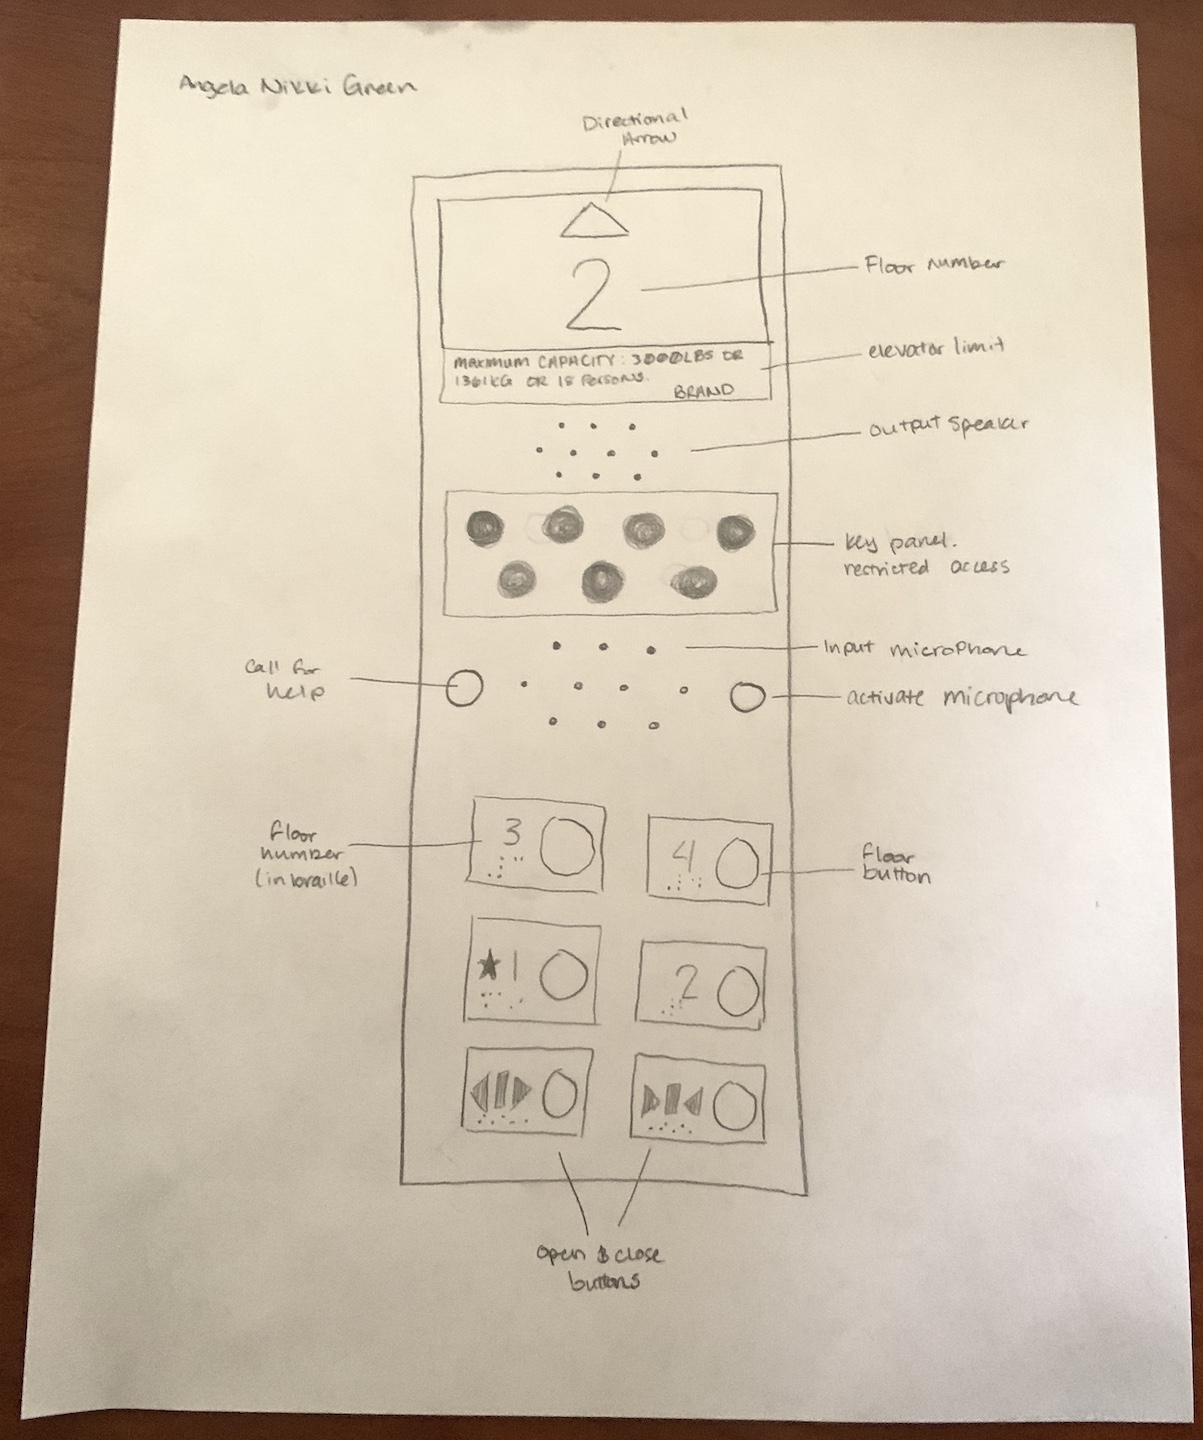 Angela Nikki Green
Directional
Arrow
2
Floor number
MAXIMUM CAPACITY: 3000LBS OR
1361KG OR 18 Persons.
BRAND
elevator limit
output speaker
key panel.
restricted access
Input microphone
call for
help
activate microphone
3
4
floor
number
(in braille)
floor
button
★1
2
open & close
buttons